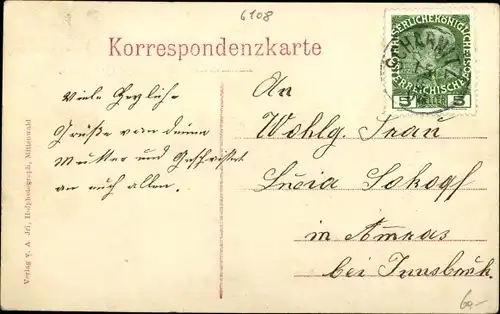 6108
Korrespondenzkarte
KAISERLICHE KÖNIGLICHE
ÖSTERREICHISCHE
5 HELLER 5
SCHARNITZ
Viele Herzliche
Grüsse von deiner
Mutter und Geschwister
an euch allen.
An
Wohlg. Frau
Lucia
in Amras
bei Innsbruck.
Verlag v. A. Jri, Hofphotograph, Mittenwald
60-